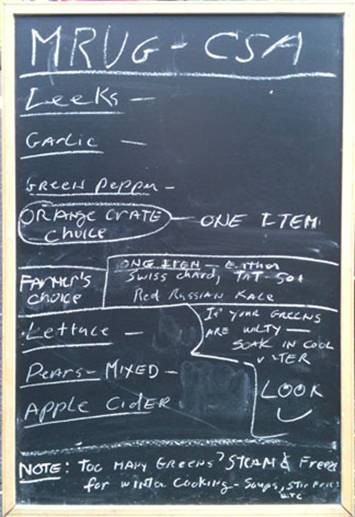 MRUG - CSA
Leeks -
Garlic -
Green Pepper -
ORANGE CRATE — ONE ITEM
Choice
FARMER'S Choice
ONE ITEM - Either
Swiss Chard, TAT-SOI
Red Russian Kale
Lettuce -
If your GREENS
ARE WILTY —
SOAK IN COOL
WATER
Pears - MIXED -
LOOK
APPLE CIDER
NOTE: TOO MANY GREENS? STEAM & Freeze
for WINTER COOKING - Soups, STIR FRIES
ETC